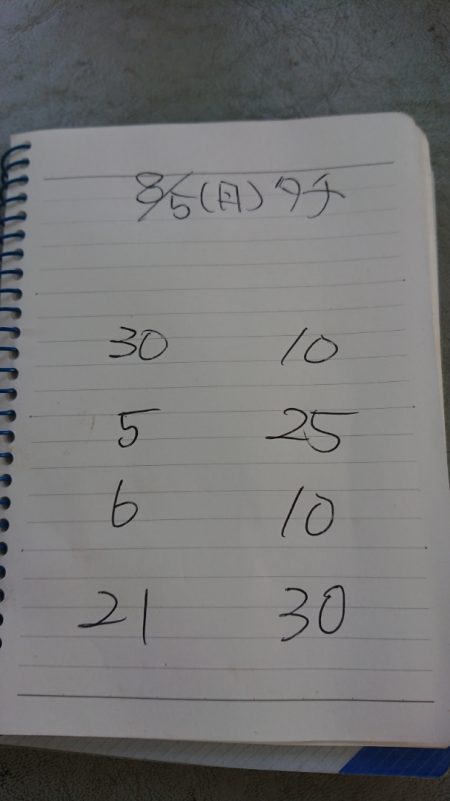 8/5(日)夕子
30 10
5 25
6 10
21 30